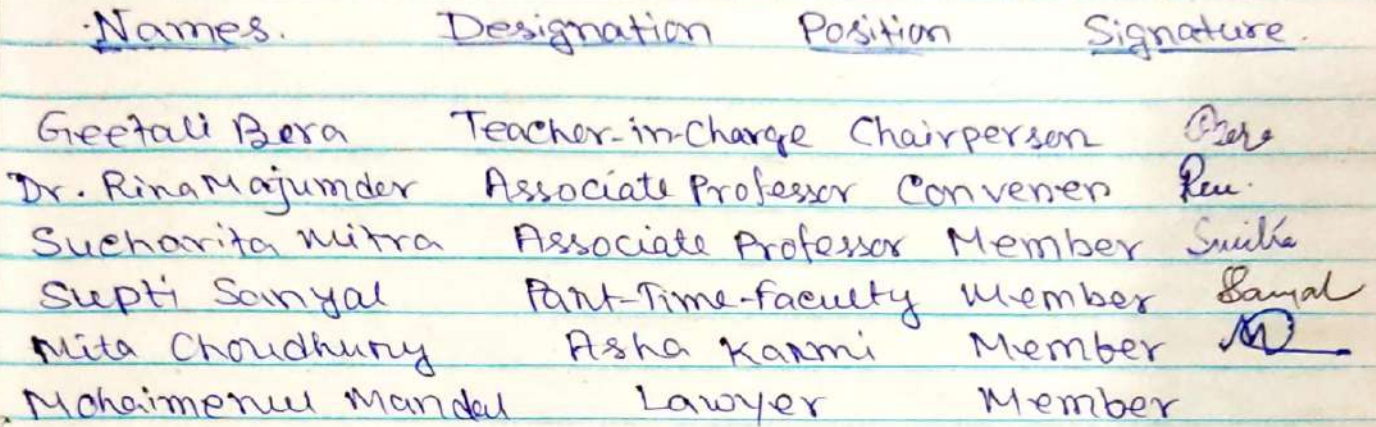 Names. Designation Position Signature.
Geetali Bera Teacher-in-Charge Chairperson Bera
Dr. Rina Majumder Associate Professor Convener
Sucharita Mitra Associate Professor Member
Supti Sanyal Part-Time-Faculty Member Sanyal
Mita Choudhury Asha Karmi Member
Mandal Lawyer Member